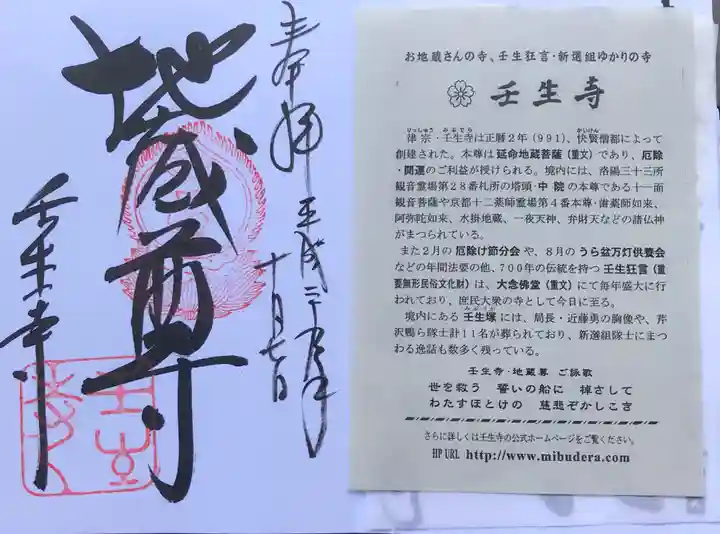 奉拝 平成二 年
十月七日
地蔵尊
壬生寺
お地蔵さんの寺、壬生狂言・新選組ゆかりの寺
壬生寺
りっしゅう みぶでら かいげん
律宗・壬生寺は正暦2年(991)、快賢僧都によって
創建された。本尊は延命地蔵菩薩(重文)であり、厄除
・開運のご利益が授けられる。境内には、洛陽三十三所
観音霊場第28番札所の塔頭・中院の本尊である十一面
観音菩薩や京都十二薬師霊場第4番本尊・歯薬師如来、
阿弥陀如来、水掛地蔵、一夜天神、弁財天などの諸仏神
がまつられている。
また2月の厄除け節分会や、8月のうら盆万灯供養会
などの年間法要の他、700年の伝統を持つ壬生狂言(重
要無形民俗文化財)は、大念佛堂(重文)にて毎年盛大に行
われており、庶民大衆の寺として今日に至る。
みぶづか
境内にある壬生塚には、局長・近藤勇の胸像や、芹
沢鴨ら隊士計11名が葬られており、新選組隊士にまつ
わる逸話も数多く残っている。
壬生寺・地蔵尊 ご詠歌
世を救う 誓いの船に 棹さして
わたすほとけの 慈悲ぞかしこき
さらに詳しくは壬生寺の公式ホームページをご覧ください。
HP URL http://www.mibudera.com